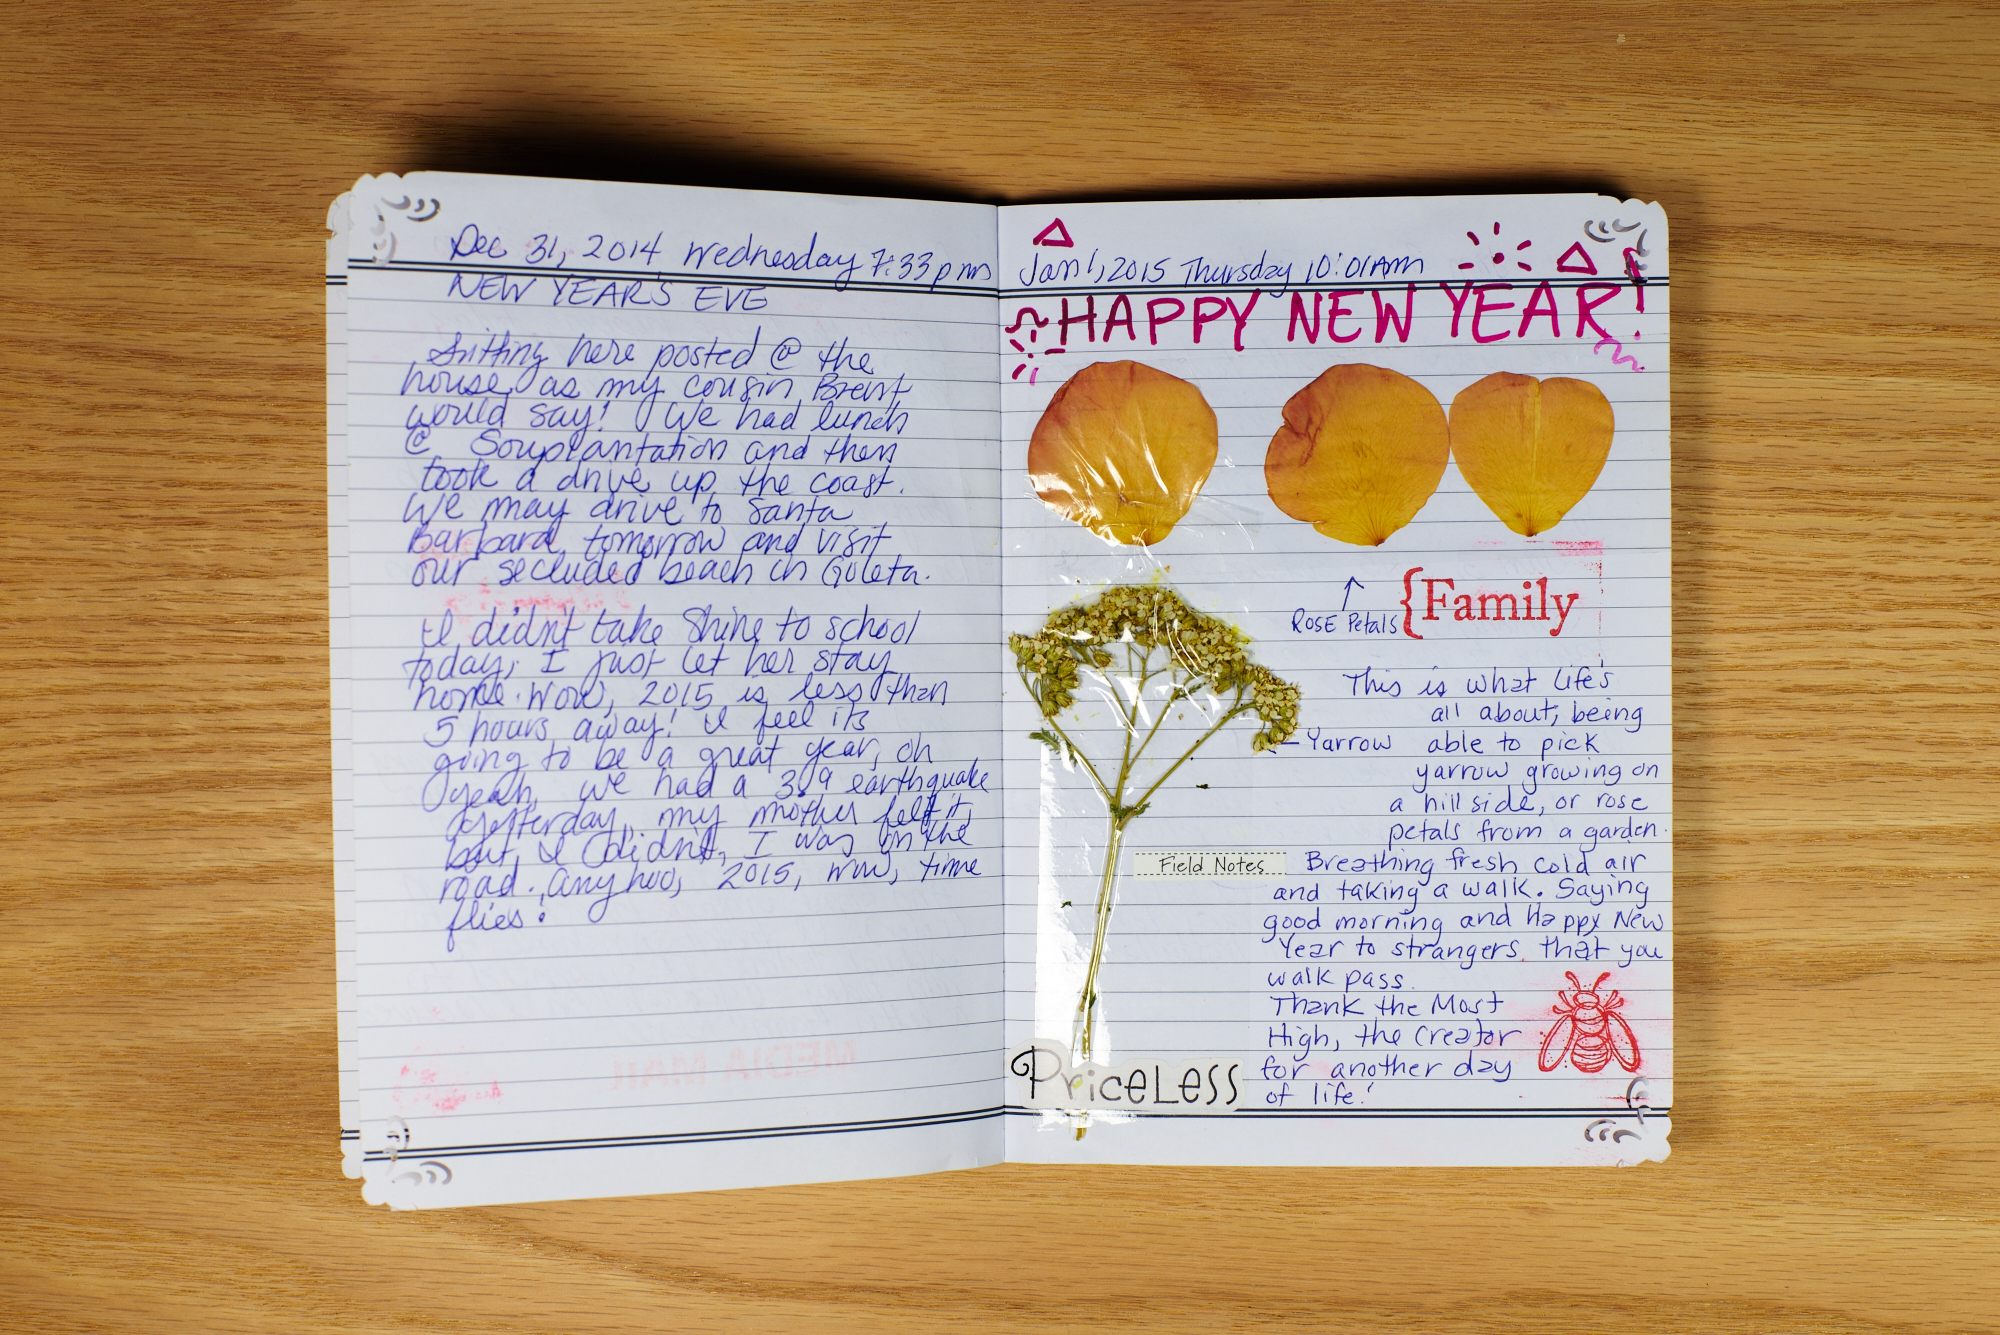 Dec 31, 2014 Wednesday 7:33pm
NEW YEAR'S EVE
Sitting here posted @ the
house, as my cousin Brent
would say! We had lunch
@ Souplantation and then
took a drive up the coast.
We may drive to Santa
Barbara, tomorrow and visit
our secluded beach in Goleta.
I didn't take Shine to school
today, I just let her stay
home. Wow, 2015 is less than
5 hours away! I feel its
going to be a great year, oh
yeah, we had a 3.9 earthquake
yesterday, my mother felt it,
but, I didn't, I was on the
road. Anyhoo, 2015, wow, time
flies!
Jan 1, 2015 Thursday 10:01AM
HAPPY NEW YEAR!
ROSE Petals
{Family
This is what Life's
all about, being
Yarrow
able to pick
yarrow growing on
a hill side, or rose
petals from a garden.
Field Notes
Breathing fresh cold air
and taking a walk. Saying
good morning and Happy New
Year to strangers that you
walk pass.
Thank the Most
High, the Creator
for another day
of life!
PriceLess
MEDIA MAIL